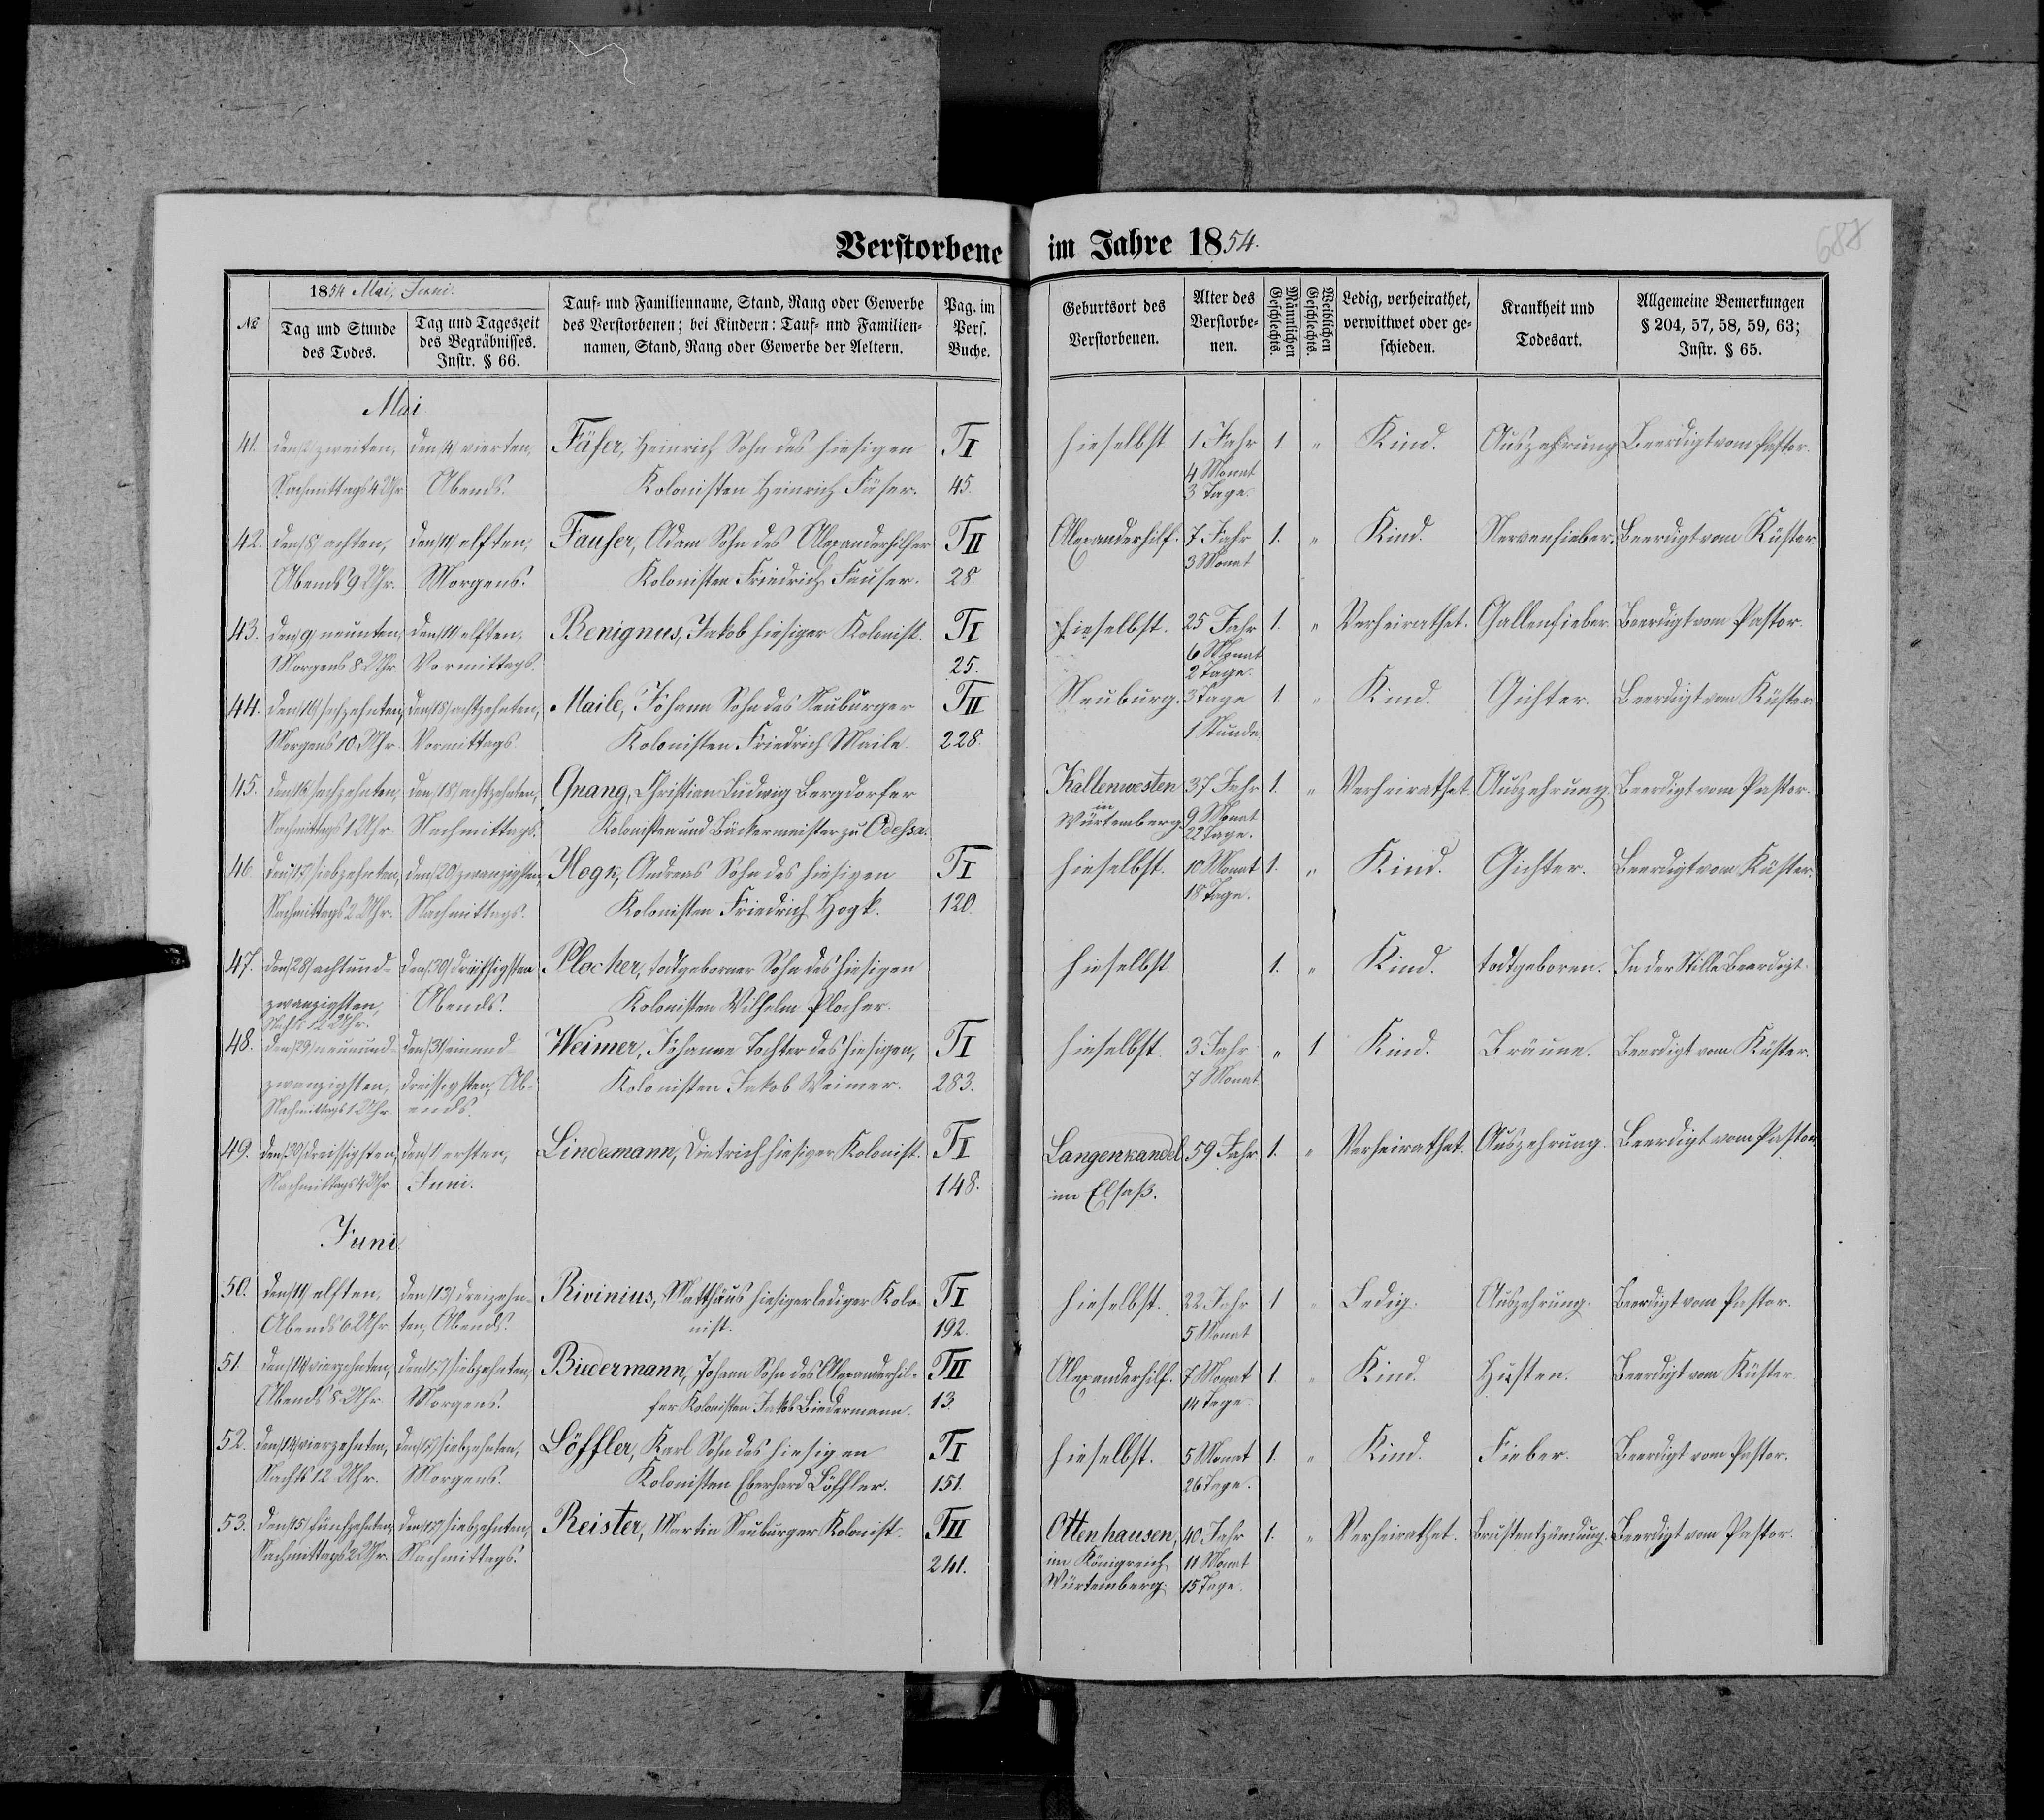 Verstorbene im Jahre 1854.
687
1854 Mai, Juni.
№
Tag und Stunde des Todes.
Tag und Tageszeit des Begräbnisses. Instr. § 66.
Tauf- und Familienname, Stand, Rang oder Gewerbe des Verstorbenen; bei Kindern: Tauf- und Familien-namen, Stand, Rang oder Gewerbe der Aeltern.
Pag. im Pers. Buche.
Geburtsort des Verstorbenen.
Alter des Verstorbe-nen.
Männlichen Geschlechts.
Weiblichen Geschlechts.
Ledig, verheirathet, verwittwet oder ge-schieden.
Krankheit und Todesart.
Allgemeine Bemerkungen § 204, 57, 58, 59, 63; Instr. § 65.
Mai
41. den |2| zweiten, den |4| vierten, Fäser, Heinrich Sohn des hiesigen TI hieselbst. 1 Jahr 1 " Kind. Auszehrung Beerdigt vom Pastor.
Nachmittags 4 Uhr Abends. Kolonisten Heinrich Fäser. 45. 4 Monat
3 Tage.
42. den |8| achten, den |11| elften, Fauser, Adam Sohn des Alexanderhilfer TII Alexanderhilf. 7 Jahr 1. " Kind. Nervenfieber. Beerdigt vom Küster
Abends 9 Uhr. Morgens. Kolonisten Friedrich Fauser. 28. 3 Monat
43. den |9| neunten, den |11| elften, Benignus, Jakob hiesiger Kolonist. TI hieselbst. 25 Jahr 1. " Verheirathet. Gallenfieber. Beerdigt vom Pastor.
Morgens 8 Uhr. Vormittags. 25. 6 Monat
2 Tage.
44. den |16| sechzehnten, den |18| achtzehnten, Maile, Johann Sohn des Neuburger TII Neuburg. 3 Tage 1 " Kind. Gichter. Beerdigt vom Küster
Morgens 10 Uhr. Vormittags. Kolonisten Friedrich Maile. 228. 1 Stunde.
45. den |16| sechzehnten, den |18| achtzehnten, Gnang, Christian Ludwig Bergdorfer Kaltenwesten 37 Jahr 1. " Verheirathet. Auszehrung. Beerdigt vom Pastor.
Nachmittags 1 Uhr. Nachmittags. Kolonisten und Bäckermeister zu Odessa. in Würtemberg. 9 Monat
22 Tage.
46. den |17| siebzehnten, den |20| zwanzigsten, Hogk, Andreas Sohn des hiesigen TI hieselbst. 10 Monat 1. " Kind. Gichter. Beerdigt vom Küster.
Nachmittags 2 Uhr. Nachmittags. Kolonisten Friedrich Hogk. 120. 18 Tage.
47. den |28| achtund- den |30| dreissigsten Plocher, todtgeborner Sohn des hiesigen hieselbst 1. " Kind. todtgeboren. In der Stille Beerdigt.
zwanzigsten, Abends. Kolonisten Wilhelm Plocher.
Nachts 12 Uhr.
48. den |29| neunund- den |31| einund- Weimer, Johanne Tochter des hiesigen, TI hieselbst 3 Jahr " 1. Kind. Bräune. Beerdigt vom Küster.
zwanzigsten, dreissigsten, Ab- Kolonisten Jakob Weimer. 283. 7 Monat.
Nachmittags 1 Uhr. ends.
49. den |30| dreissigsten, den |1| ersten, Lindemann, Dietrich hiesiger Kolonist. TI Langenkandel 59 Jahr 1. " Verheirathet. Auszehrung. Beerdigt vom Pastor
Nachmittags 4 Uhr Juni. 148. im Elsaß.
Juni
50. den |11| elften, den |13| dreizehn- Rivinius, Matthäus hiesiger lediger Kolo- TI hieselbst. 22 Jahr 1 " Ledig. Auszehrung. Beerdigt vom Pastor.
Abends 6 Uhr ten, Abends. nist. 192. 5 Monat
51. den |14| vierzehnten, den |17| siebzehnten, Biedermann, Johann Sohn des Alexanderhil- TII Alexanderhilf. 7 Monat 1. " Kind. Husten. Beerdigt vom Küster.
Abends 8 Uhr Morgens. fer Kolonisten Jakob Biedermann. 13. 14 Tage.
52. den |14| vierzehnten, den |17| siebzehnten, Löffler, Karl Sohn des hiesigen TI hieselbst. 5 Monat 1. " Kind. Fieber. Beerdigt vom Pastor.
Nachts 12 Uhr. Morgens. Kolonisten Eberhard Löffler. 151. 26 Tage.
53. den |15| fünfzehnten, den |17| siebzehnten, Reister, Martin Neuburger Kolonist. TII Ottenhausen, 40 Jahr 1. " Verheirathet. Brustentzündung. Beerdigt vom Pastor.
Nachmittags 2 Uhr. Nachmittags. 241. im Königreich 11 Monat
Würtemberg. 15 Tage.